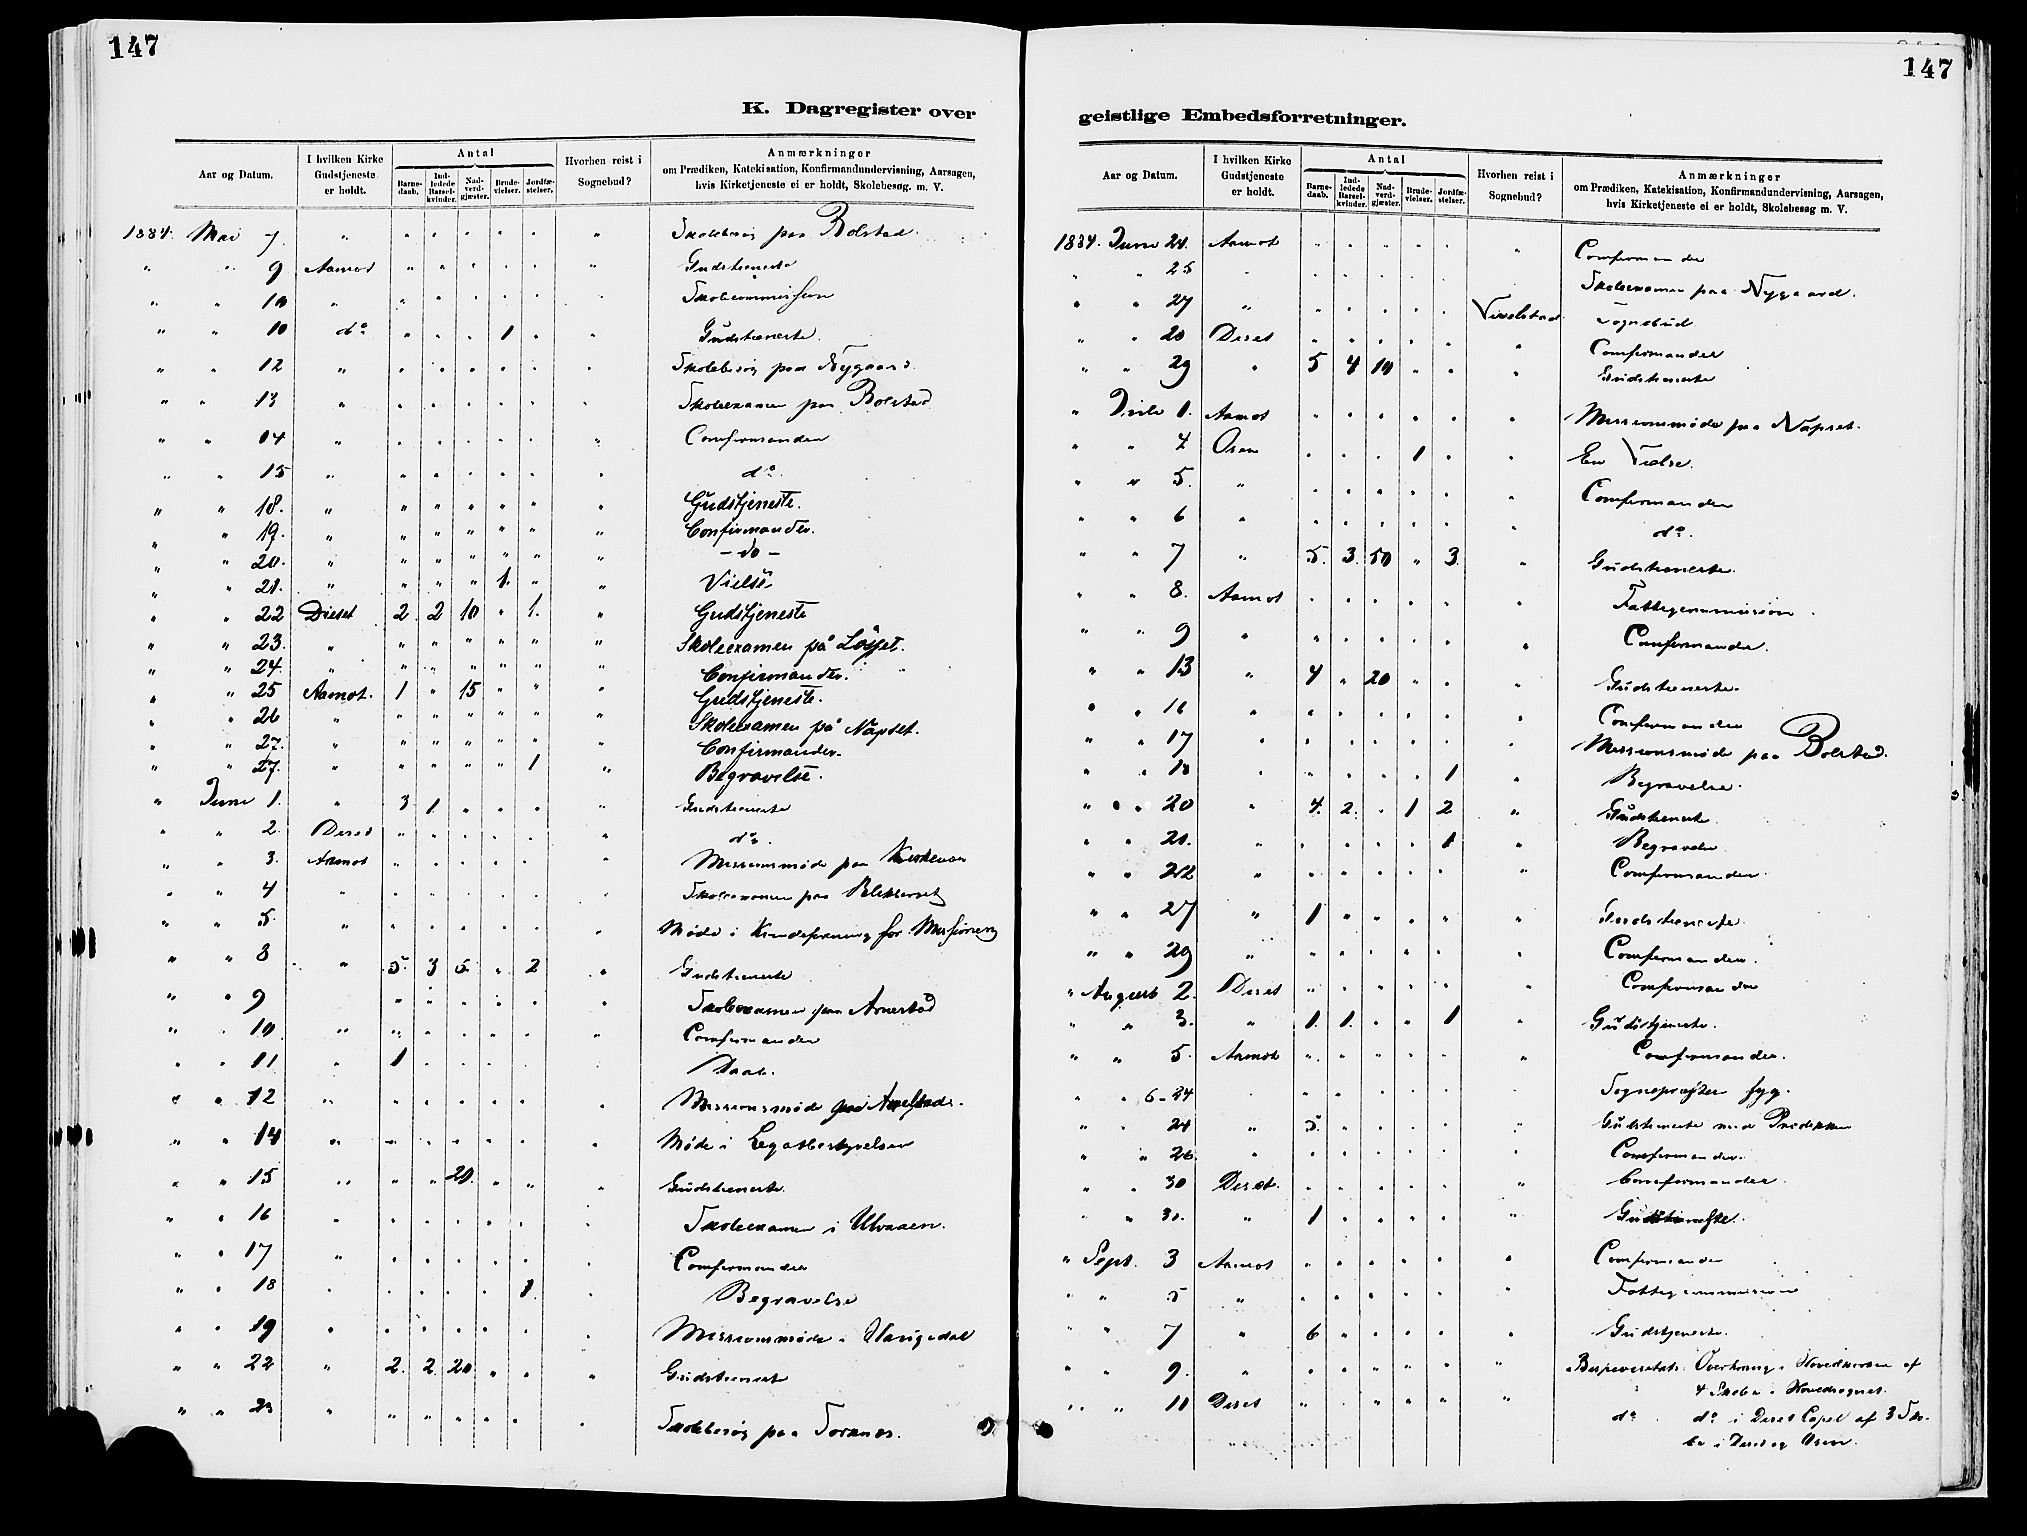 147
K. Dagregister over
Aar og Datum. I hvilken Kirke Gudstjeneste er holdt. Antal Barne-daab. Ind-ledede Barsel-kvinder. Nad-verd-gjæster. Brude-vielser. Jordfæ-stelser. Hvorhen reist i Sognebud? Anmærkninger om Prædiken, Katekisation, Konfirmandundervisning, Aarsagen, hvis Kirketjeneste ei er holdt, Skolebesøg. m. V.
1884. Mai 7. " " " " " " " Skolebesøg paa Bolstad.
" " 9 Aamot " " " " " " Gudstieneste
" " 10 " " " " " " " Skolecommission
" " 10 do " " " 1 " " Gudstieneste.
" " 12 " " " " " " " Skolebesøg paa Nygaard.
" " 13 " " " " " " " Skoleexamen paa Bolstad
" " 14 " " " " " " " Confirmander
" " 15 " " " " " " " do.
" " 18. " " " " " " " Gudstjeneste.
" " 19. " " " " " " " Confirmander.
" " 20. " " " " " " " - do -
" " 21. " " " " 1. " " Vielse
" " 22 Dieset 2 2 10 " 1. " Gudstjeneste
" " 23. " " " " " " " Skoleexamen på Løsset.
" " 24. " " " " " " " Confirmander.
" " 25 Aamot. 1 " 15 " " " Gudstjeneste.
" " 26 " " " " " " " Skoleexamen på Næpset.
" " 27. " " " " " " " Confirmander.
" " 27. " " " " " 1 " Begravelse.
" Juni 1. " 3 1. " " " " Gudstieneste
" " 2. Deset " " " " " " do.
" " 3. Aamot " " " " " " Missionsmøde paa
" " 4 " " " " " " " Skoleexamen paa
" " 5. " " " " " " " Møde i Kvindeforening for Missionen
" " 8 " 5. 3 5. " 2 " Gudstieneste
" " 9 " " " " " " Skoleexamen paa Arnestad
" " 10 " " " " " " " Confirmander
" " 11 " 1 " " " " Daab.
" " 12 " " " " " " " Missionsmøde paa
" " 14 " " " " " " " Møde i Legatbestyrelsen
" " 15 " " " 20. " " " Gudstieneste.
" " 16 " " " " " " " Skoleexamen i Ulvaaen.
" " 17 " " " " " " " Confirmander
" " 18 " " " " " 1. " Begravelse
" " 19 " " " " " " " Missionsmøde i
" " 22 " 2. 2 20 " " " Gudstieneste
" " 23 " " " " " " " Skolebesøg paa Tornæs.
147
geistlige Embedsforretninger.
Aar og Datum. I hvilken Kirke Gudstjeneste er holdt. Antal Barne-daab. Ind-ledede Barsel-kvinder. Nad-verd-gjæster. Brude-vielser. Jordfæ-stelser. Hvorhen reist i Sognebud? Anmærkninger om Prædiken, Katekisation, Konfirmandundervisning, Aarsagen, hvis Kirketjeneste ei er holdt, Skolebesøg m. V.
1884. Juni 24. Aamot " " " " " " Confirmander
" " 25 " " " " " " Skoleexamen paa Nygaard.
" " 27 " " " " " " Sognebud
" " 28 Deset " " " " " " Confirmander
" " 29 " 5 4 10 " " " Gudstieneste
" Juli 1. Aamot " " " " " " Missionsmøde paa Næpset.
" " 4 Osen " " " 1 " " En Vielse.
" " 5. " " " " " " " Confirmander
" " 6 " " " " " " " do.
" " 7 " 5. 3. 50 " 3. " Gudstieneste.
" " 8. Aamot " " " " " " Fattigcommission
" " 9 " " " " " " " Confirmander.
" " 13 " 4 " 20 " " " Gudstieneste.
" " 16 " " " " " " " Confirmander
" " 17 " " " " " " " Missionsmøde paa Bolstad.
" " 18 " " " " " 1 " Begravelse.
" " 20 " 4. 2. " 1 2 " Gudstieneste
" " 21. " " " " " 1 " Begravelse
" " 22 " " " " " " " Confirmander.
" " 27 " 1 " " " " " Gudstieneste
" " 29 " " " " " " " Confirmander.
" August 2. Deset " " " " " " Confirmander
" " 3. " 1. 1. " " 1 " Gudstjeneste.
" " 5. Aamot " " " " " " Confirmander.
" " 6-24 " " " " " " Sognepræsten syg.
" " 24 " 5. " " " " Gudstieneste med Prædiken
" " 26 " " " " " " " Confirmander.
" " 30 Deset. " " " " " " Confirmander
" " 31. " 1 " " " " " Gudstieneste.
" Sept. 3 Aamot " " " " " " Confirmander
" " 5 " " " " " " " Fattigcommission
" " 7 " 6 " " " " " Gudstjeneste.
" " 9. " " " " " " " Overhøring i Hovedkirken af
4 Skoler i Hovedsognet.
" " 11 Deset " " " " " " do do i Deset Capel af 3 Sko-
ler i Deset og Osen.